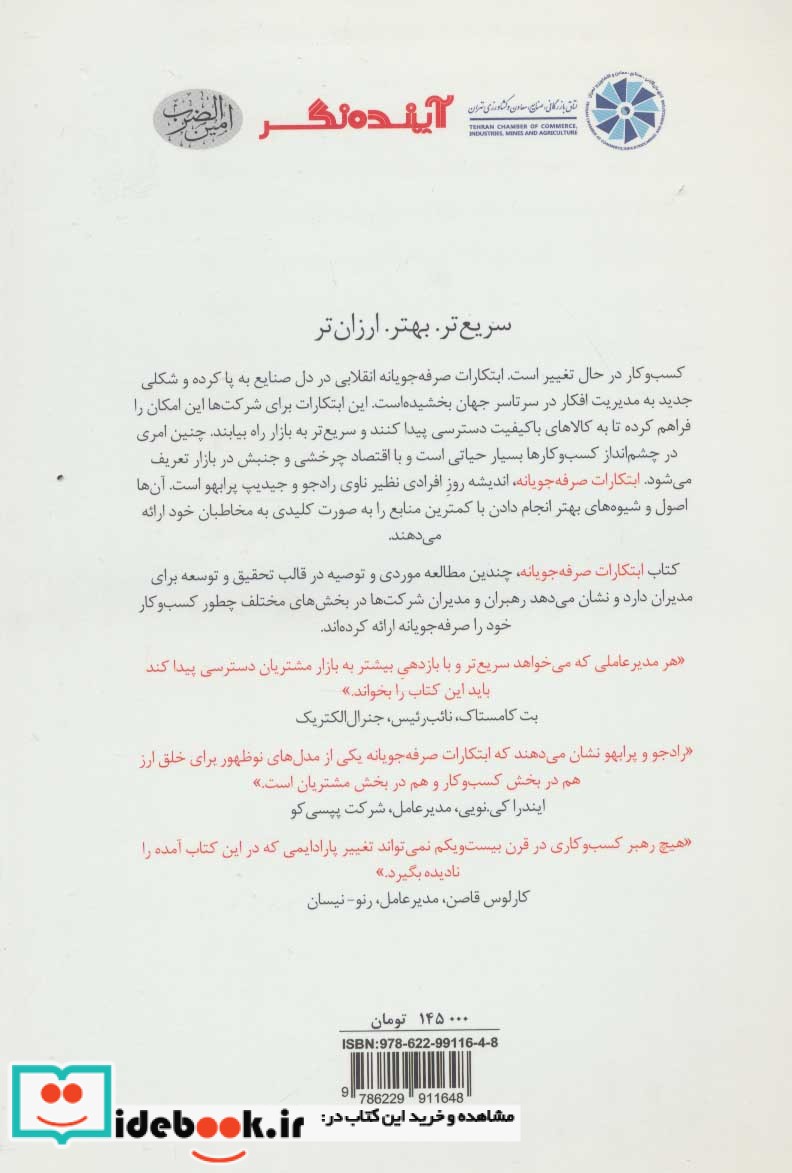 اتاق بازرگانی، صنایع، معادن و کشاورزی تهران
TEHRAN CHAMBER OF COMMERCE,
INDUSTRIES, MINES AND AGRICULTURE
آینده‌نگر
امین الضرب
سریع‌تر. بهتر. ارزان‌تر
کسب‌وکار در حال تغییر است. ابتکارات صرفه‌جویانه انقلابی در دل صنایع به پا کرده و شکلی
جدید به مدیریت افکار در سرتاسر جهان بخشیده‌است. این ابتکارات برای شرکت‌ها این امکان را
فراهم کرده تا به کالاهای باکیفیت دسترسی پیدا کنند و سریع‌تر به بازار راه بیابند. چنین امری
در چشم‌انداز کسب‌وکارها بسیار حیاتی است و با اقتصاد چرخشی و جنبش در بازار تعریف
می‌شود. ابتکارات صرفه‌جویانه، اندیشه روزِ افرادی نظیر ناوی رادجو و جیدیپ پرابهو است. آن‌ها
اصول و شیوه‌های بهتر انجام دادن با کمترین منابع را به صورت کلیدی به مخاطبان خود ارائه
می‌دهند.
کتاب ابتکارات صرفه‌جویانه، چندین مطالعه موردی و توصیه در قالب تحقیق و توسعه برای
مدیران دارد و نشان می‌دهد رهبران و مدیران شرکت‌ها در بخش‌های مختلف چطور کسب‌وکار
خود را صرفه‌جویانه ارائه کرده‌اند.
«هر مدیرعاملی که می‌خواهد سریع‌تر و با بازدهیِ بیشتر به بازار مشتریان دسترسی پیدا کند
باید این کتاب را بخواند.»
بت کامستاک، نائب‌رئیس، جنرال‌الکتریک
«رادجو و پرابهو نشان می‌دهند که ابتکارات صرفه‌جویانه یکی از مدل‌های نوظهور برای خلق ارز
هم در بخش کسب‌وکار و هم در بخش مشتریان است.»
ایندرا کی.نویی، مدیرعامل، شرکت پپسی‌کو
«هیچ رهبر کسب‌وکاری در قرن بیست‌ویکم نمی‌تواند تغییر پارادایمی که در این کتاب آمده را
نادیده بگیرد.»
کارلوس قاصن، مدیرعامل، رنو- نیسان
۱۴۵۰۰۰ تومان
ISBN:978-622-99116-4-8
9 786229 911648
مشاهده و خرید این کتاب در:
idebook.ir